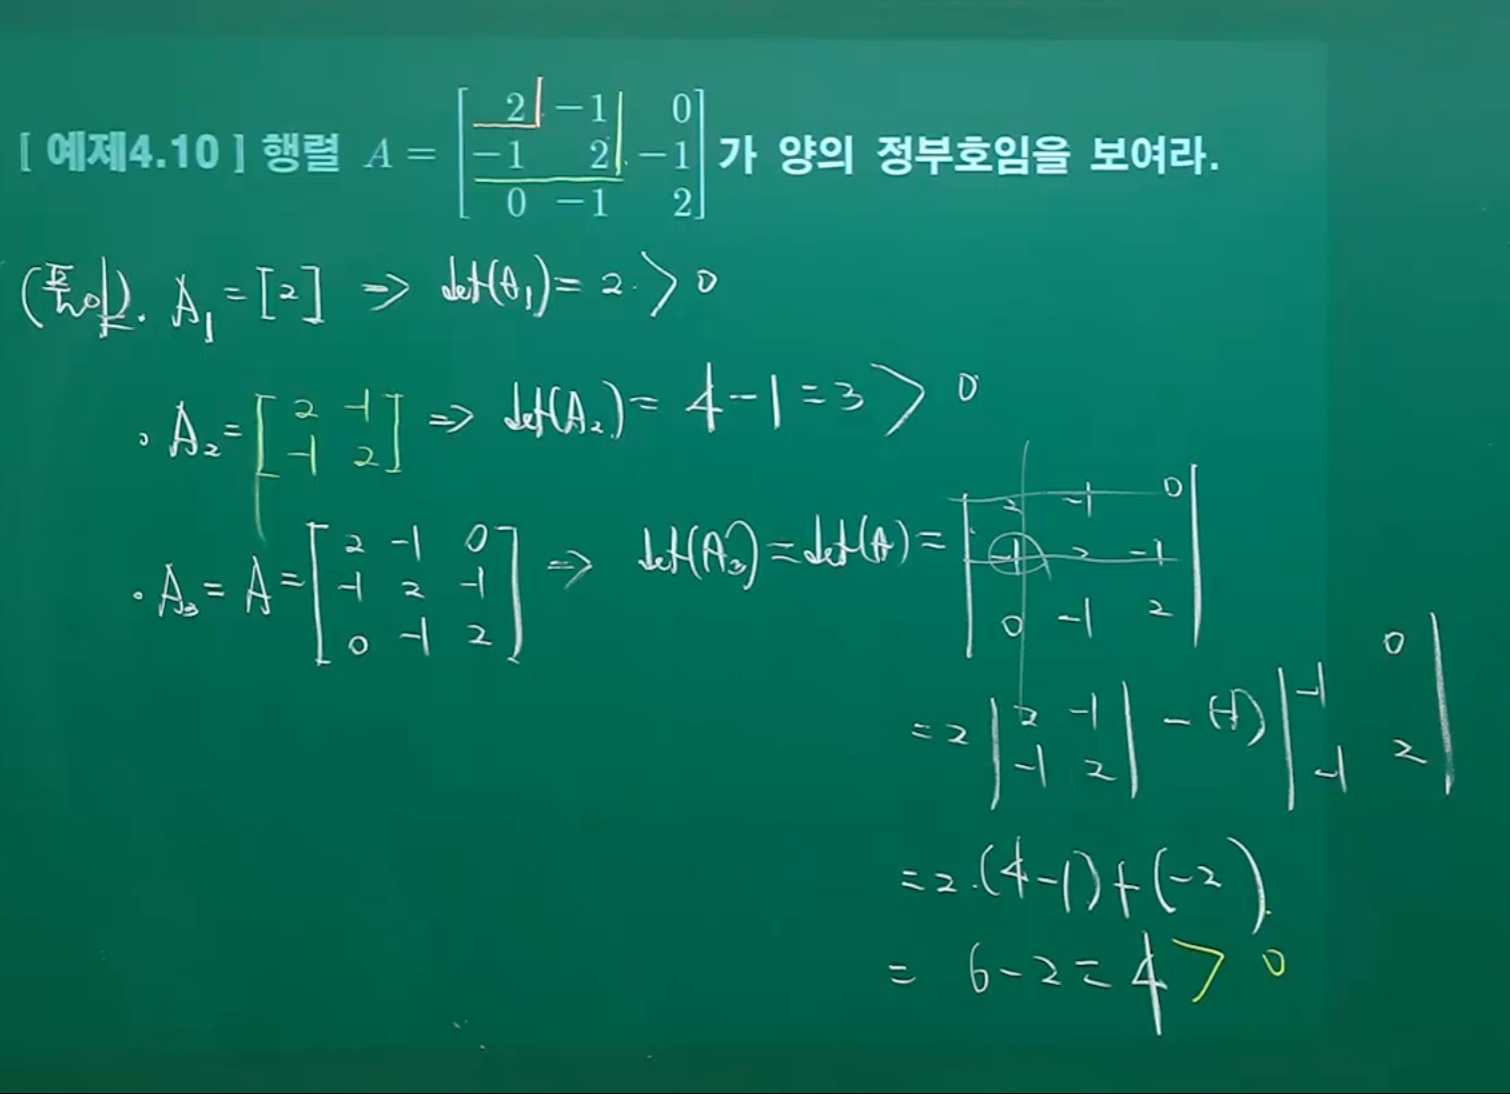 [ 예제4.10 ] 행렬 A = [ 2 -1 0 ; -1 2 -1 ; 0 -1 2 ] 가 양의 정부호임을 보여라.
(풀이). A₁ = [2] => det(A₁) = 2 > 0
· A₂ = [ 2 -1 ; -1 2 ] => det(A₂) = 4 - 1 = 3 > 0
· A₃ = A = [ 2 -1 0 ; -1 2 -1 ; 0 -1 2 ] => det(A₃) = det(A) = | 2 -1 0 ; -1 2 -1 ; 0 -1 2 |
= 2 | 2 -1 ; -1 2 | - (-1) | -1 0 ; -1 2 |
= 2·(4-1) + (-2)
= 6 - 2 = 4 > 0